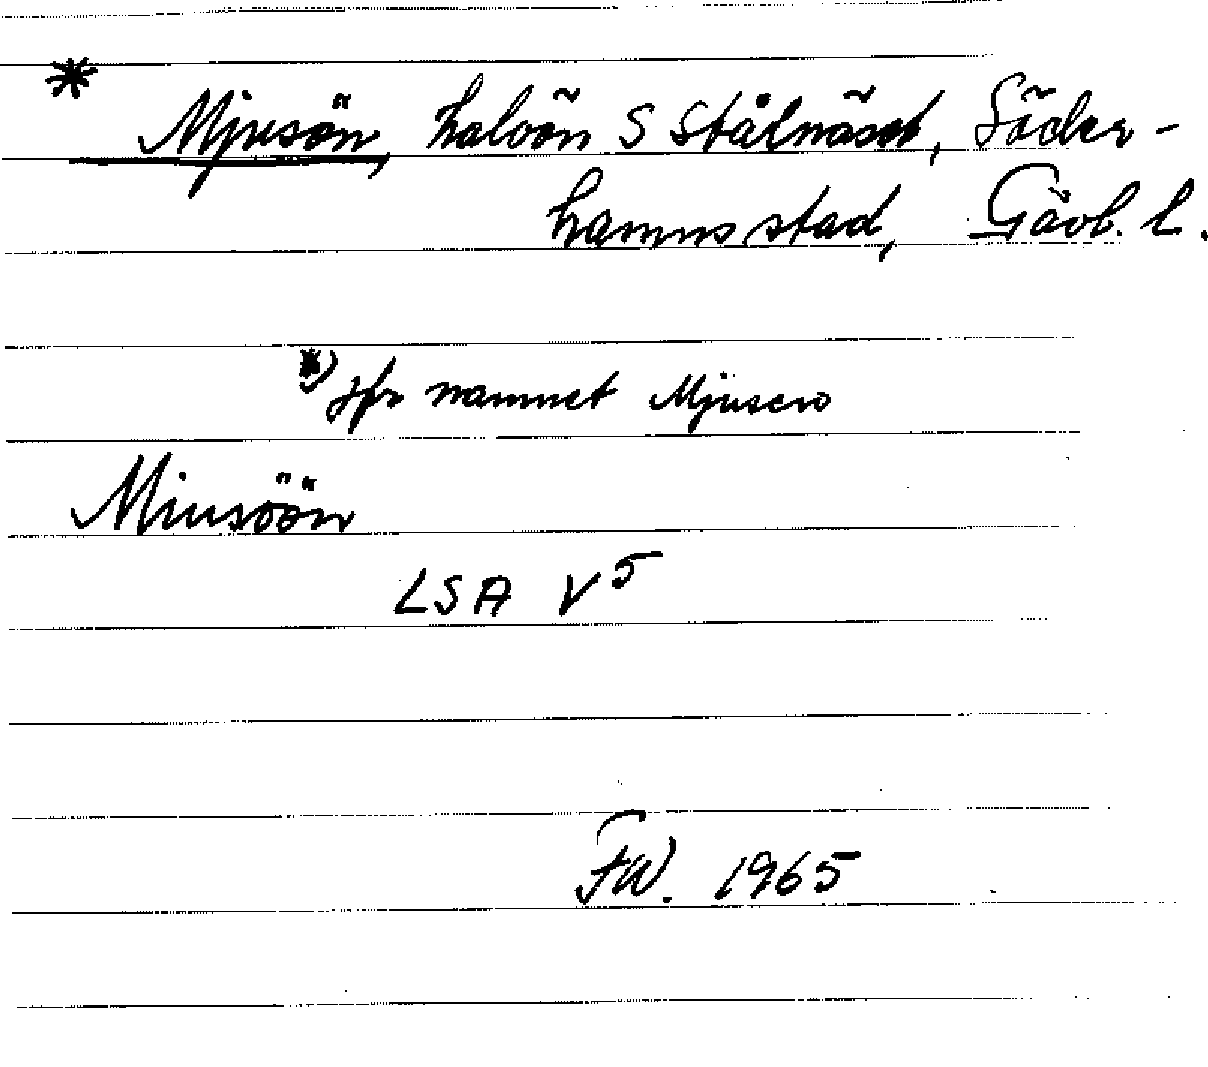 * Mjusön, halvön S Stålnäset, Söder-
hamns stad, Gävl. l.
*) Jfr namnet Mjusero
Miusöön
LSA V5
FW. 1965